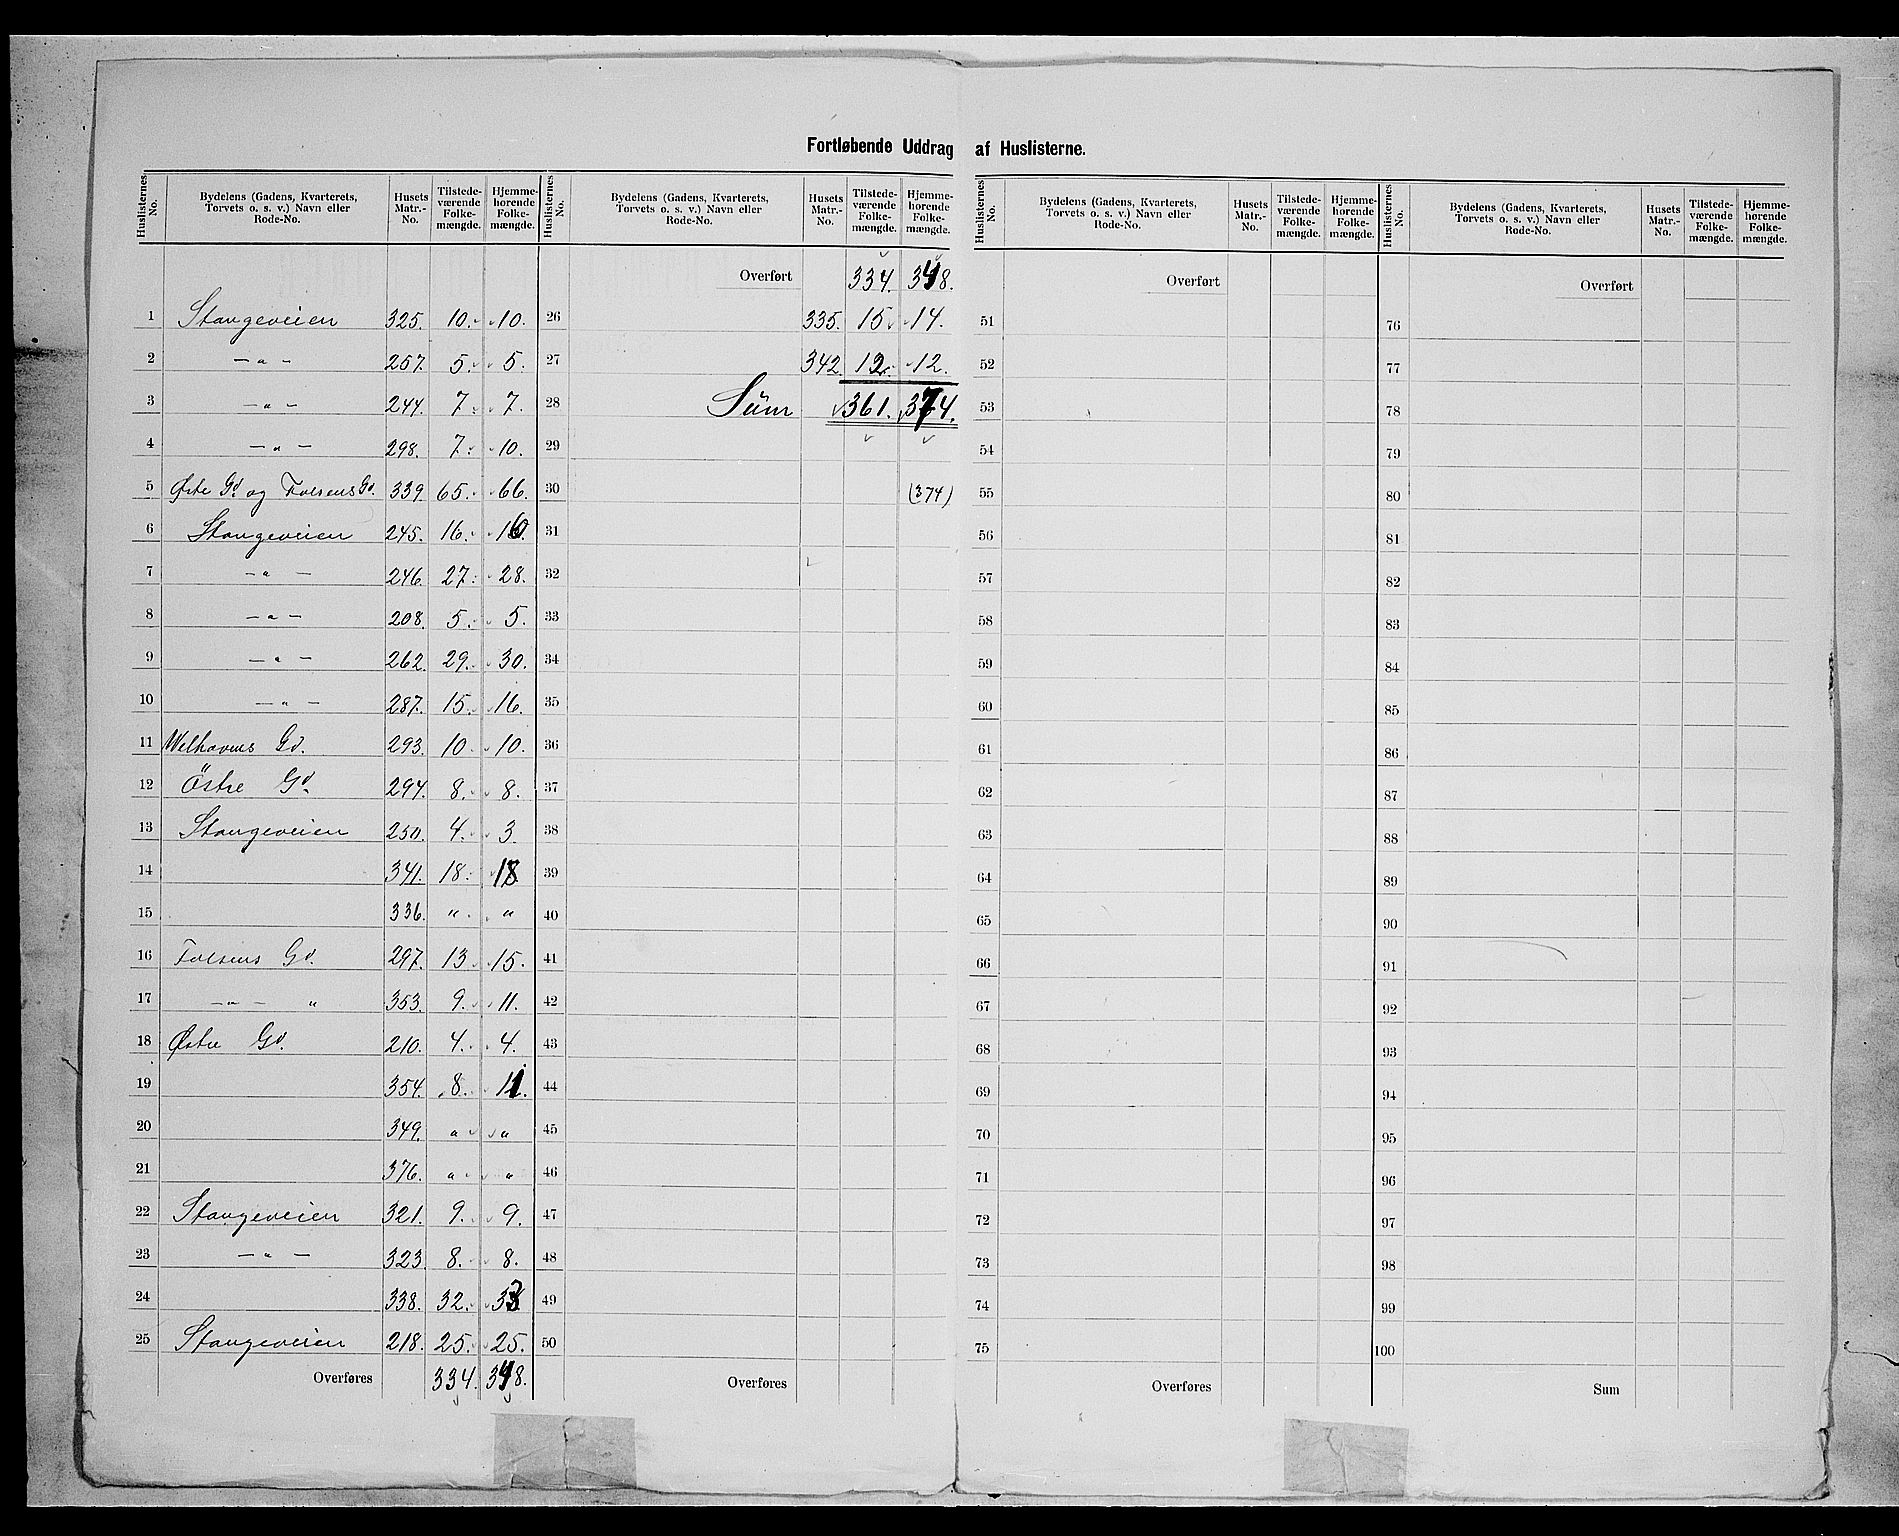 Fortløbende Uddrag af Huslisterne.
Huslisternes No. | Bydelens (Gadens, Kvarterets, Torvets o. s. v.) Navn eller Rode-No. | Husets Matr.-No. | Tilstede-værende Folke-mængde. | Hjemme-hørende Folke-mængde.
1 Stangeveien 325. 10. 10.
2 — „ — 257. 5. 5.
3 — „ — 244. 7. 7.
4 — „ — 298. 7. 10.
5 Østre Gd. og Folsens Gd. 339. 65. 66.
6 Stangeveien 245. 16. 16.
7 — „ — 246. 27. 28.
8 — „ — 208. 5. 5.
9 — „ — 262. 29. 30.
10 — „ — 287. 15. 16.
11 Welhavens Gd. 293. 10. 10.
12 Östre Gd. 294. 8. 8.
13 Stangeveien 250. 4. 3
14 341. 18. 18
15 336. „ „
16 Folsens Gd. 297. 13 15.
17 — „ — „ 353. 9. 11.
18 Østre Gd. 210. 4. 4.
19 354. 8. 11.
20 349. „ „
21 376. „ „
22 Stangeveien 321. 9. 9.
23 — „ — 323 8. 8.
24 338. 32. 33
25 Stangeveien 218. 25. 25.
Overføres 334. 348.
Huslisternes No. | Bydelens (Gadens, Kvarterets, Torvets o. s. v.) Navn eller Rode-No. | Husets Matr.-No. | Tilstede-værende Folke-mængde. | Hjemme-hørende Folke-mængde.
Overført 334. 348.
26 335. 15 14.
27 342. 12. 12.
28 Sum 361. 374.
29
30 (374)
31
32
33
34
35
36
37
38
39
40
41
42
43
44
45
46
47
48
49
50
Overføres
Huslisternes No. | Bydelens (Gadens, Kvarterets, Torvets o. s. v.) Navn eller Rode-No. | Husets Matr.-No. | Tilstede-værende Folke-mængde. | Hjemme-hørende Folke-mængde.
Overført
51
52
53
54
55
56
57
58
59
60
61
62
63
64
65
66
67
68
69
70
71
72
73
74
75
Overføres
Huslisternes No. | Bydelens (Gadens, Kvarterets, Torvets o. s. v.) Navn eller Rode-No. | Husets Matr.-No. | Tilstede-værende Folke-mængde. | Hjemme-hørende Folke-mængde.
Overført
76
77
78
79
80
81
82
83
84
85
86
87
88
89
90
91
92
93
94
95
96
97
98
99
100
Sum